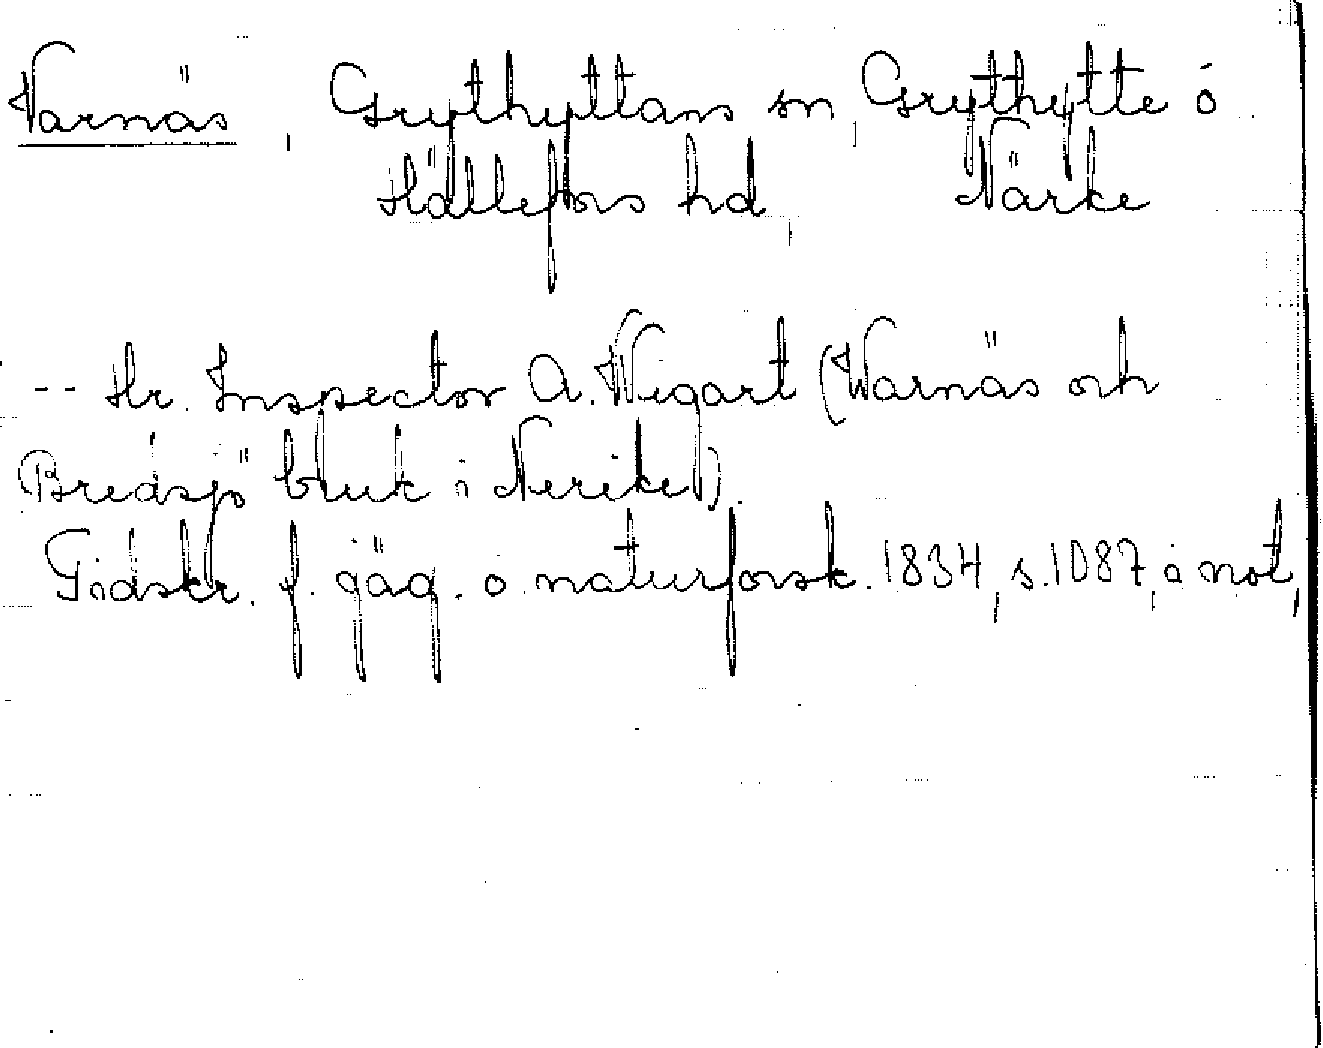 Varnäs, Grythyttans sn, Grythytte ö.
Hällefors hd, Närke
-- Hr. Inspector A. Wegart (Warnäs och
Bredsjö bruk i Nerike).
Tidskr. f. jäg. o. naturforsk. 1834, s. 1087, i not,